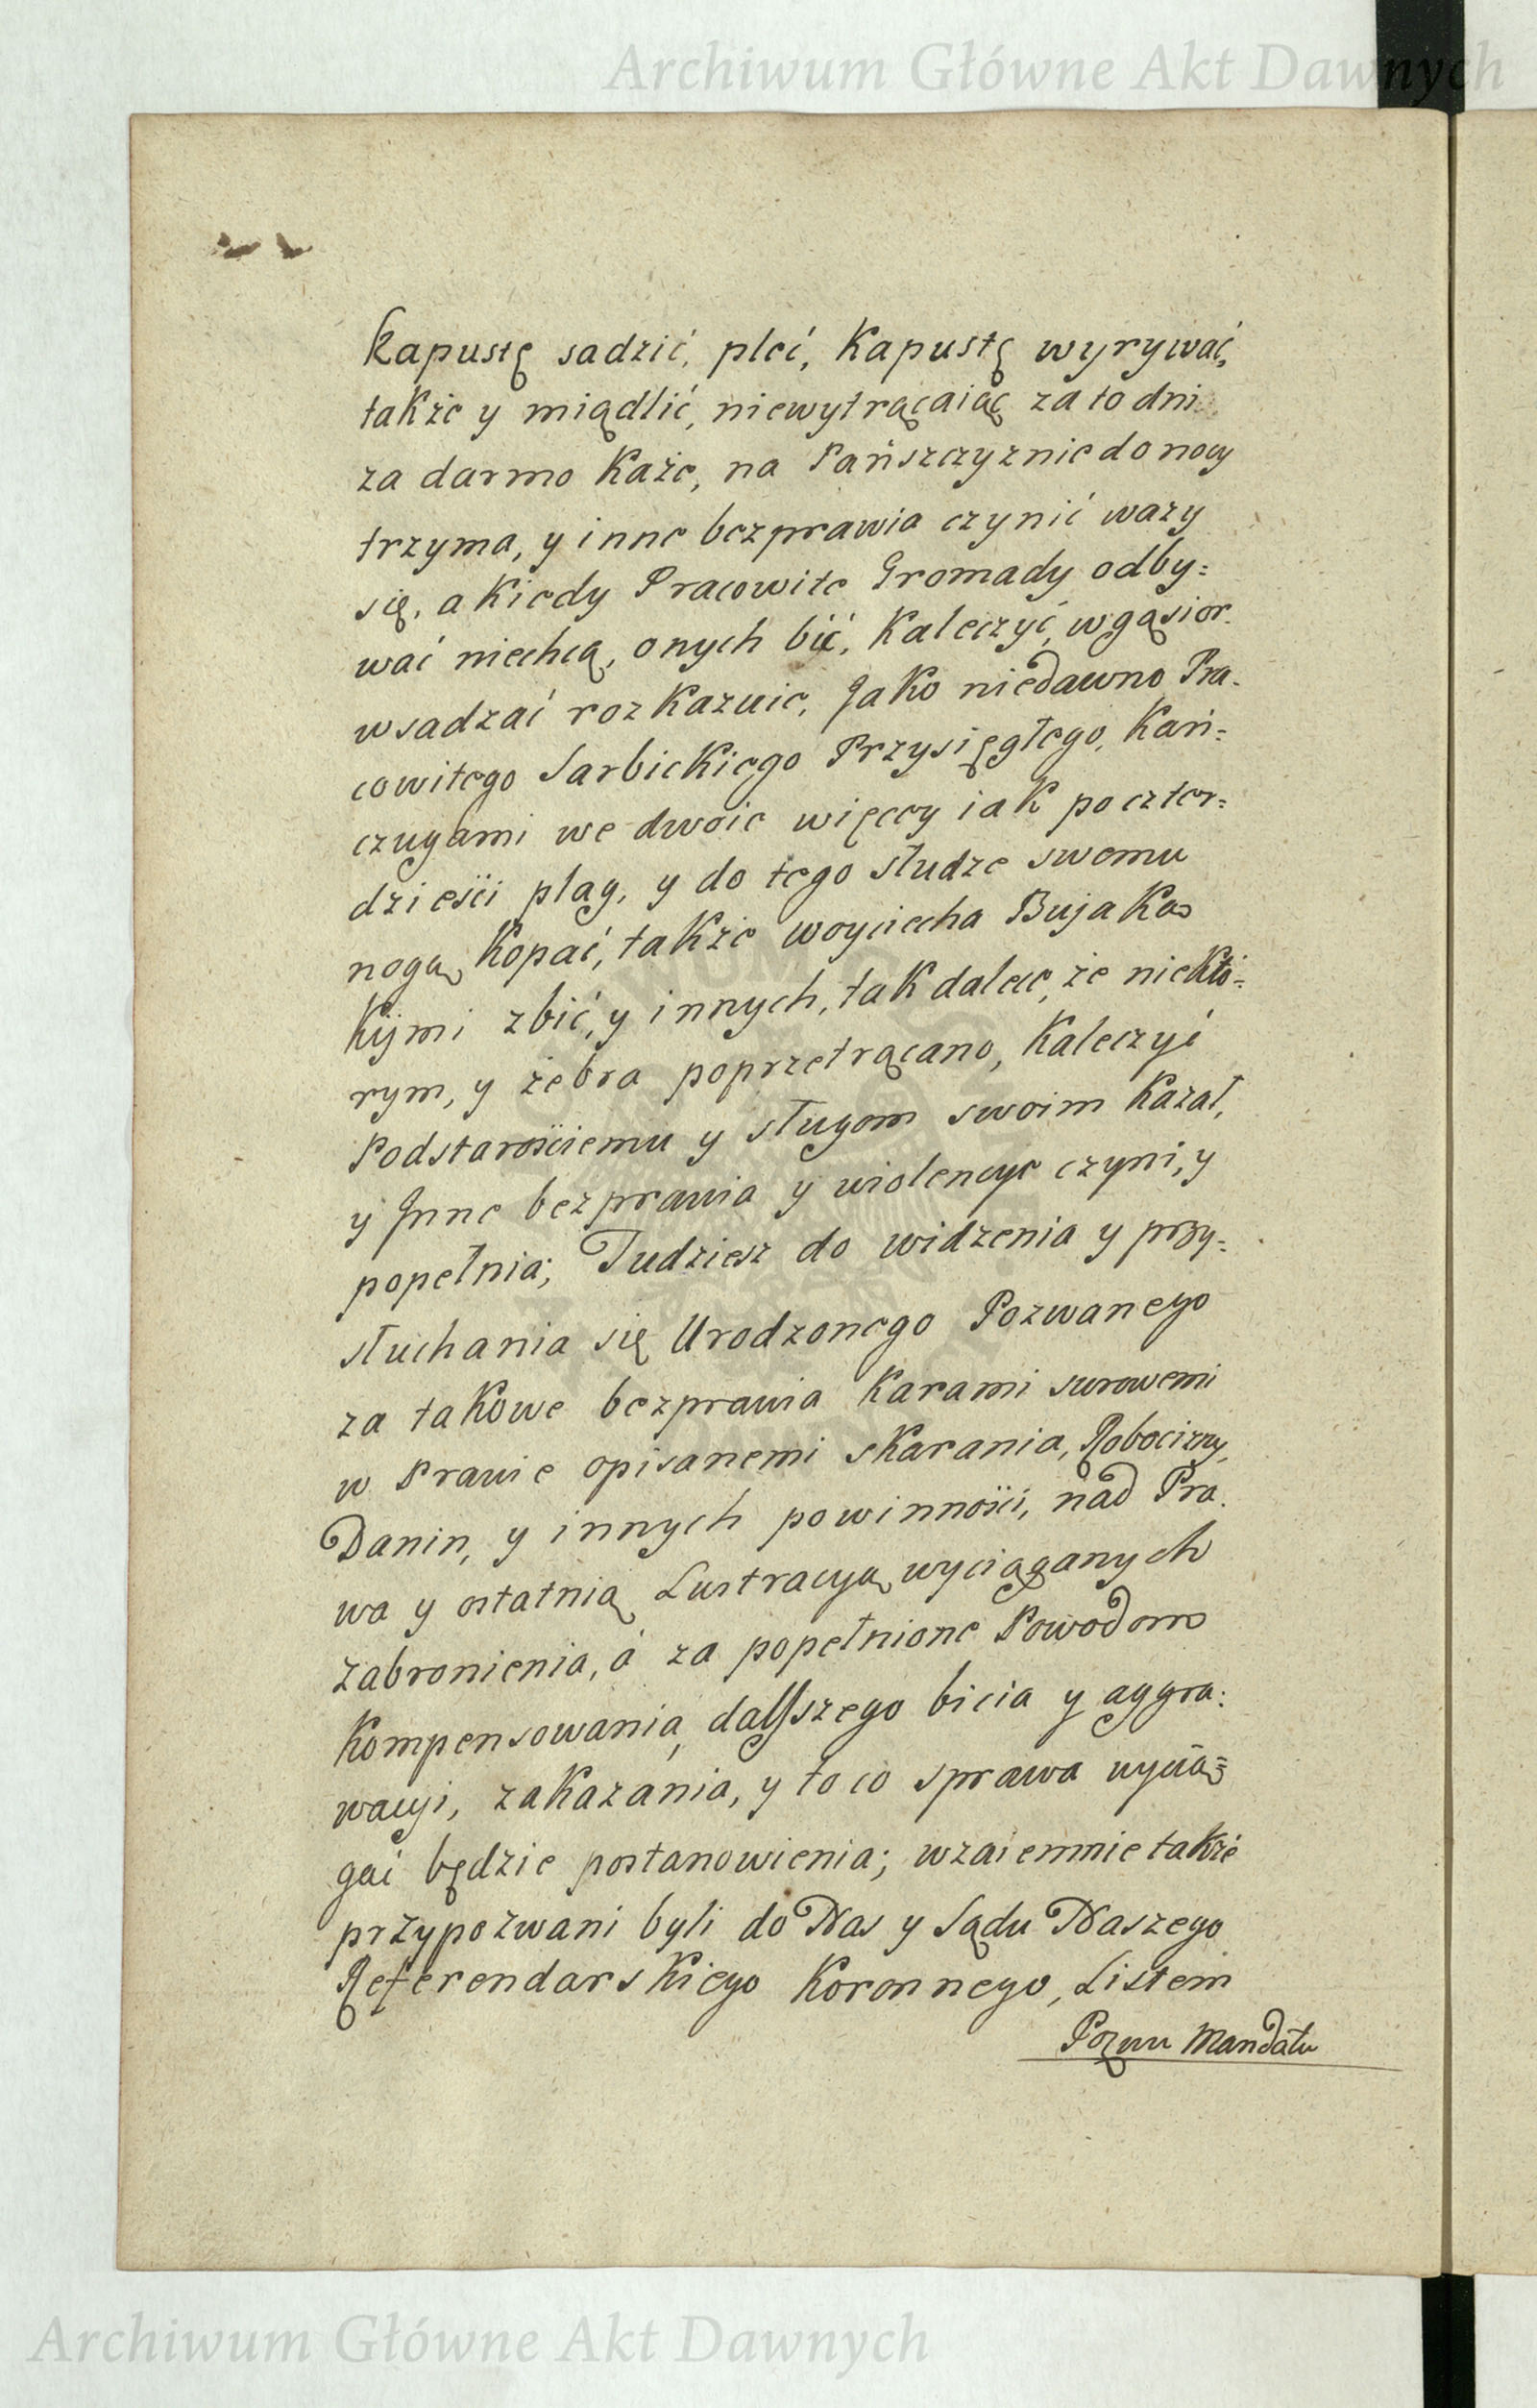 Archiwum Główne Akt Dawnych
Kapustę sadzić, pleć, Kapustę wyrywać,
także y miądlić, niewytrącaiąc za to dni
za darmo Każe, na Pańszczyznie do nocy
trzyma, y inne bezprawia czynić wazy
się, a Kiedy Pracowite Gromady odby=
wać niechcą, onych bić, Kaleczyć, wgąsior
wsadzać rozKazuie, Jako niedawno Pra-
cowitego Sarbickiego Przysięgłego, Kań=
czugami we dwoie więcey iak po czter=
dzieści plag, y do tego słudze swemu
nogą Kopać, także Woyciecha Bujaka
Kijmi zbić, y innych, tak dalece, że niektó=
rym, y żebra poprzetrącano, Kaleczyć
Podstarościemu y sługom swoim Kazał,
y Jnne bezprawia y wiolencye czyni, y
popełnia; Tudziesz do widzenia y przy=
słuchania się Urodzonego Pozwanego
za takowe bezprawia Karami surowemi
w Prawie opisanemi skarania, Robocizny,
Danin, y innych powinności, nad Pra-
wa y ostatnią Lustracyą wyciąganych
zabronienia, á za popełnione Powodom
Kompensowania, dalszego bicia y aggra=
wacyi, zakazania, y to co sprawa wycią=
gać będzie postanowienia; wzaiemnie także
przypozwani byli do Nas y Sądu Naszego
Referendarskiego Koronnego, Listem
Pozwu Mandatu
Archiwum Główne Akt Dawnych